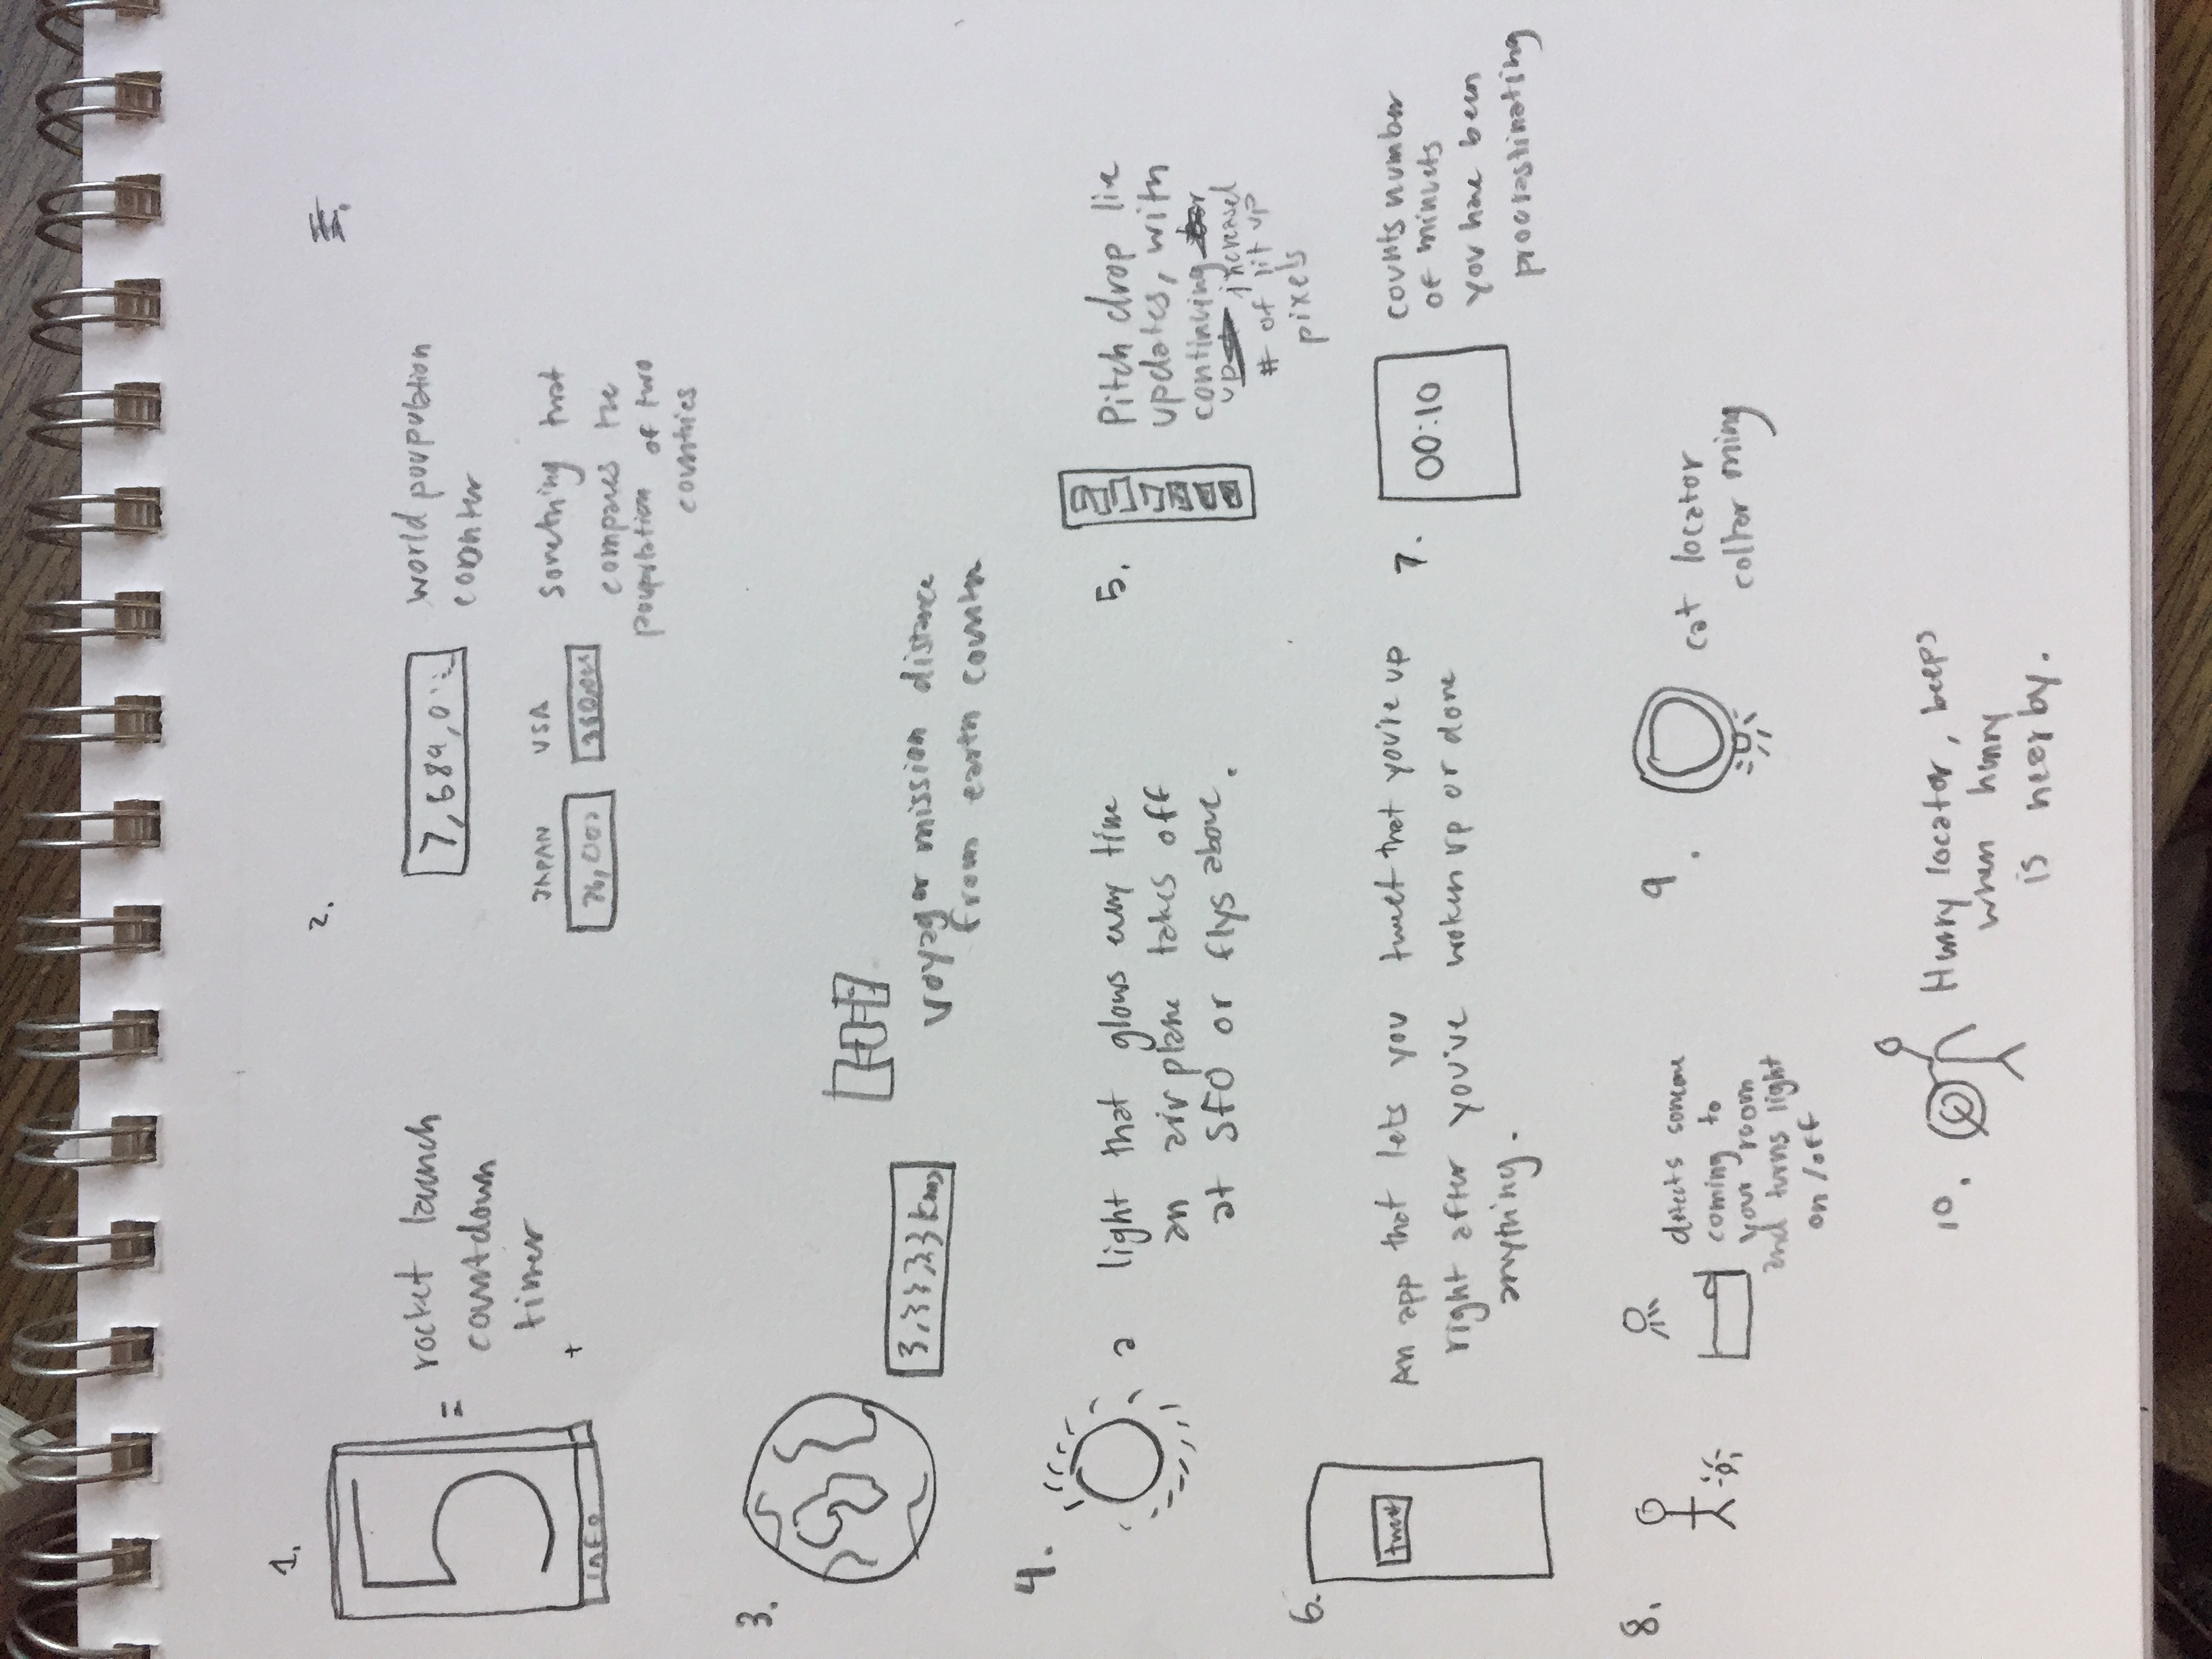 1.
5
info
=
rocket launch
countdown
timer
+
2.
7,684,0
world poupulation
counter
JAPAN
USA
something that
compares the
poupulation of two
countries
3.
3,33,33 km
voyager mission distance
from earth counter
4.
a light that glows every time
an airplane takes off
at SFO or flys above.
5.
Pitch drop live
updates, with
continuing
increased
# of lit up
pixels
6.
tweet
An app that lets you tweet that you're up
right after you've woken up or done
anything.
7.
00:10
counts number
of minuets
you have been
procrastinating
8.
detects someone
coming to
your room
and turns light
on/off
9.
cat locator
collar
10.
Henry locator, beeps
when henry
is nearby.